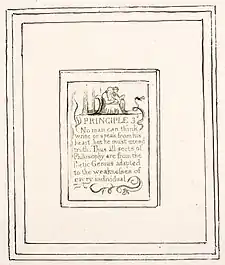 PRINCIPLE 3ᵈ
No man can think
write or speak from his
heart, but he must intend
truth. Thus all sects of
Philosophy are from the
Poetic Genius adapted
to the weaknesses of
every individual